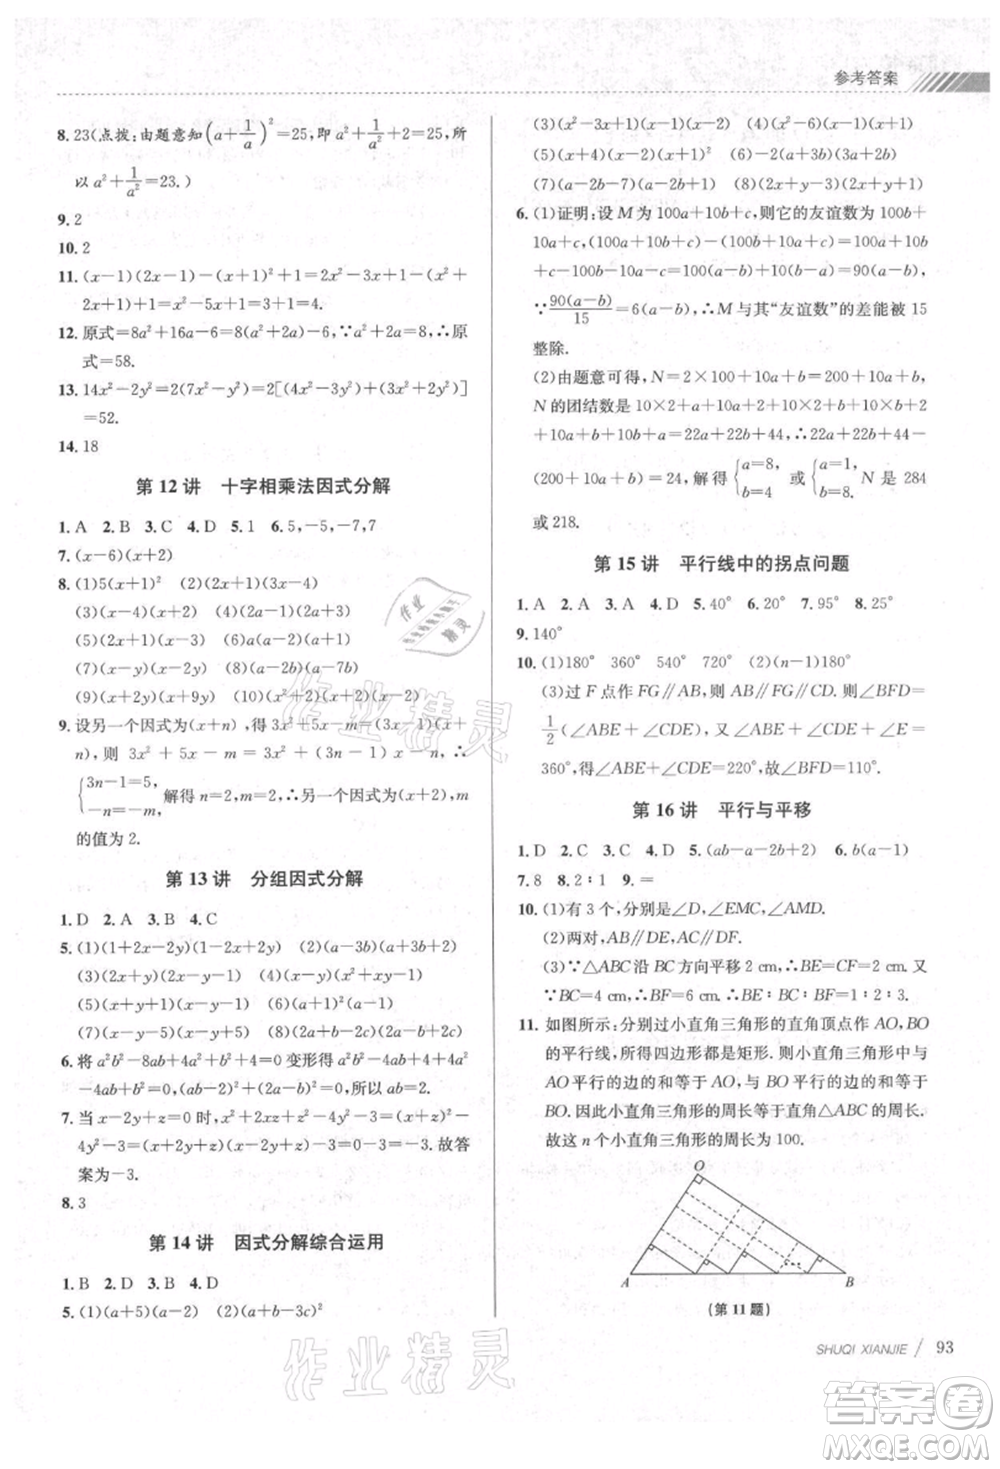 参考答案
8. 23(点拨:由题意知(a+1/a)²=25,即 a²+1/a²+2=25,所
以 a²+1/a²=23.)
9. 2
10. 2
11. (x-1)(2x-1)-(x+1)²+1=x²-5x+1=-(x²+
2x+1)+1=x²-5x+1=3+1=4.
12. 原式=8a²+16a-6=8(a²+2a)-6,∵a²+2a=8,∴原
式=58.
13. 14x²-2x²=2(7x²-x²)=2[(7x²-4x²)+(4x²-x²)]
=52.
14. 18
第 12 讲 十字相乘法因式分解
1. A 2. B 3. C 4. D 5. 1 6. 5,-5,-7,7
7. (x-6)(x+2)
8. (1)5(x+1)² (2)(x-5)(x+1)
(3)(x-4)(x-1) (4)(2a-1)(2a-3)
(5)(x-4)(x+3) (6)a(a-2)(a+1)
(7)(x-y)(x-2y) (8)(a-1)(a-7b)
(9)(x+2y)(x+9y) (10)(a-1)²(a-2)²
9. 设另一个因式为(x+n),得 3x²+5x-m=(3x-1)(x+
n), 则 3x²+5x-m=3x²+(3n-1)x-n, ∴
{3n-1=5, -n=-m, 解得 n=2,m=2,∴另一个因式为(x+2),m
的值为 2.
第 13 讲 分组因式分解
1. D 2. A 3. B 4. C
5. (1)(1+2x-2y)(1-2x+2y) (2)(x-2)(x-y)
(3)(x+2)(x-2)(x-1) (4)(x-y)(x²+xy-1)
(5)(x+y+1)(x-y-1) (6)(x-y+1)(x-y-1)
(7)(x-5y)(x-y+5) (8)(a+b+2c)(a+b-2c)
6. 将 a²b²-8ab+4a²+b²+4=0 变形得 a²b²-4ab+4+4a²-
4ab+b²=0,(ab-2)²+(2a-b)²=0,所以 ab=2.
7. 当 x-2y+z=0 时,x²+2xz+z²-4y²-3=(x+z)²-
4y²-3=(x+z+2y)(x+z-2y)-3=0-3=-3.故答
案为-3.
8. 3
第 14 讲 因式分解综合运用
1. B 2. D 3. C 4. A
5. (1)(a+5)(a-2) (2)(a+b-3c)²
(3)(x²-3x+1)(x²-x+1) (4)(x-y)(x-2)
(5)(x+y+1)² (6)(2a-1)(2a+4b-3)
(7)(a-2b)(a-1) (8)(2x+y-3)(2x-y+3)
6. (1)证明:设 M 为 100a+10b+c,则它的友谊数为 100b+
10a+c,(100a+10b+c)-(100b+10a+c)=100a+
10b+c-100b-10a-c=90a-90b=90(a-b),
∵90(a-b)/15=6(a-b),∴M 与其“友谊数”的差能被 15
整除.
(2)由题意可得,N=2×100+10a+b=200+10a+b,
N 的团结数是 10×2+a+10a+2+10×2+b+10b+
2+10a+b+10b+a=22a+22b+44,∴22a+22b+44-
(200+10a+b)=24,解得 {a=8, b=4 或 {a=1, b=8. 即 N 是 284
或 218.
第 15 讲 平行线中的拐点问题
1. A 2. A 3. A 4. D 5. 40° 6. 20° 7. 95° 8. 25°
9. 140°
10. (1)180° 360° 540° 720° (2)(n-1)180°
(3)过 F 点作 FG∥AB,则有 FG∥CD.所以∠BFD=
1/2(∠ABE+∠CDE),又∠ABE+∠CDE+∠BED=
360°,得∠ABE+∠CDE=220°,故∠BFD=110°.
第 16 讲 平行与平移
1. D 2. C 3. C 4. D 5. (ab-a-2b+2) 6. b(a-1)
7. 8 8. 2∶1 9. =
10. (1)有 3 个,分别是∠D,∠EMC,∠AMD.
(2)两对,AB∥DE,AC∥DF.
(3)∵△ABC 沿 BC 方向平移 2 cm,∴BE=CF=2 cm,
∵BC=4 cm,∴BF=6 cm,∴BE∶BC∶BF=1∶2∶3.
11. 如图所示:分别过小直角三角形的直角顶点作 AO,BO
的平行线,所得四边形都是矩形.则小直角三角形中与
AO平行的边的和等于AO,与BO平行的边的和等于
BO.因此小直角三角形的周长等于直角△ABC 的周长.
故这 n 个小直角三角形的周长为 100.
O
A
B
(第 11 题)
SHUQI XIANJIE / 93
作业精灵
作业精灵
作业精灵
答案卷
MXQE.COM